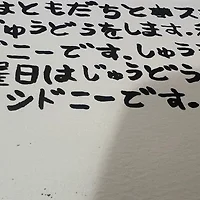 ともだちとス
ゅうどうをします。
ドニーです。しゅう
曜日はじゅうどう
シドニーです。